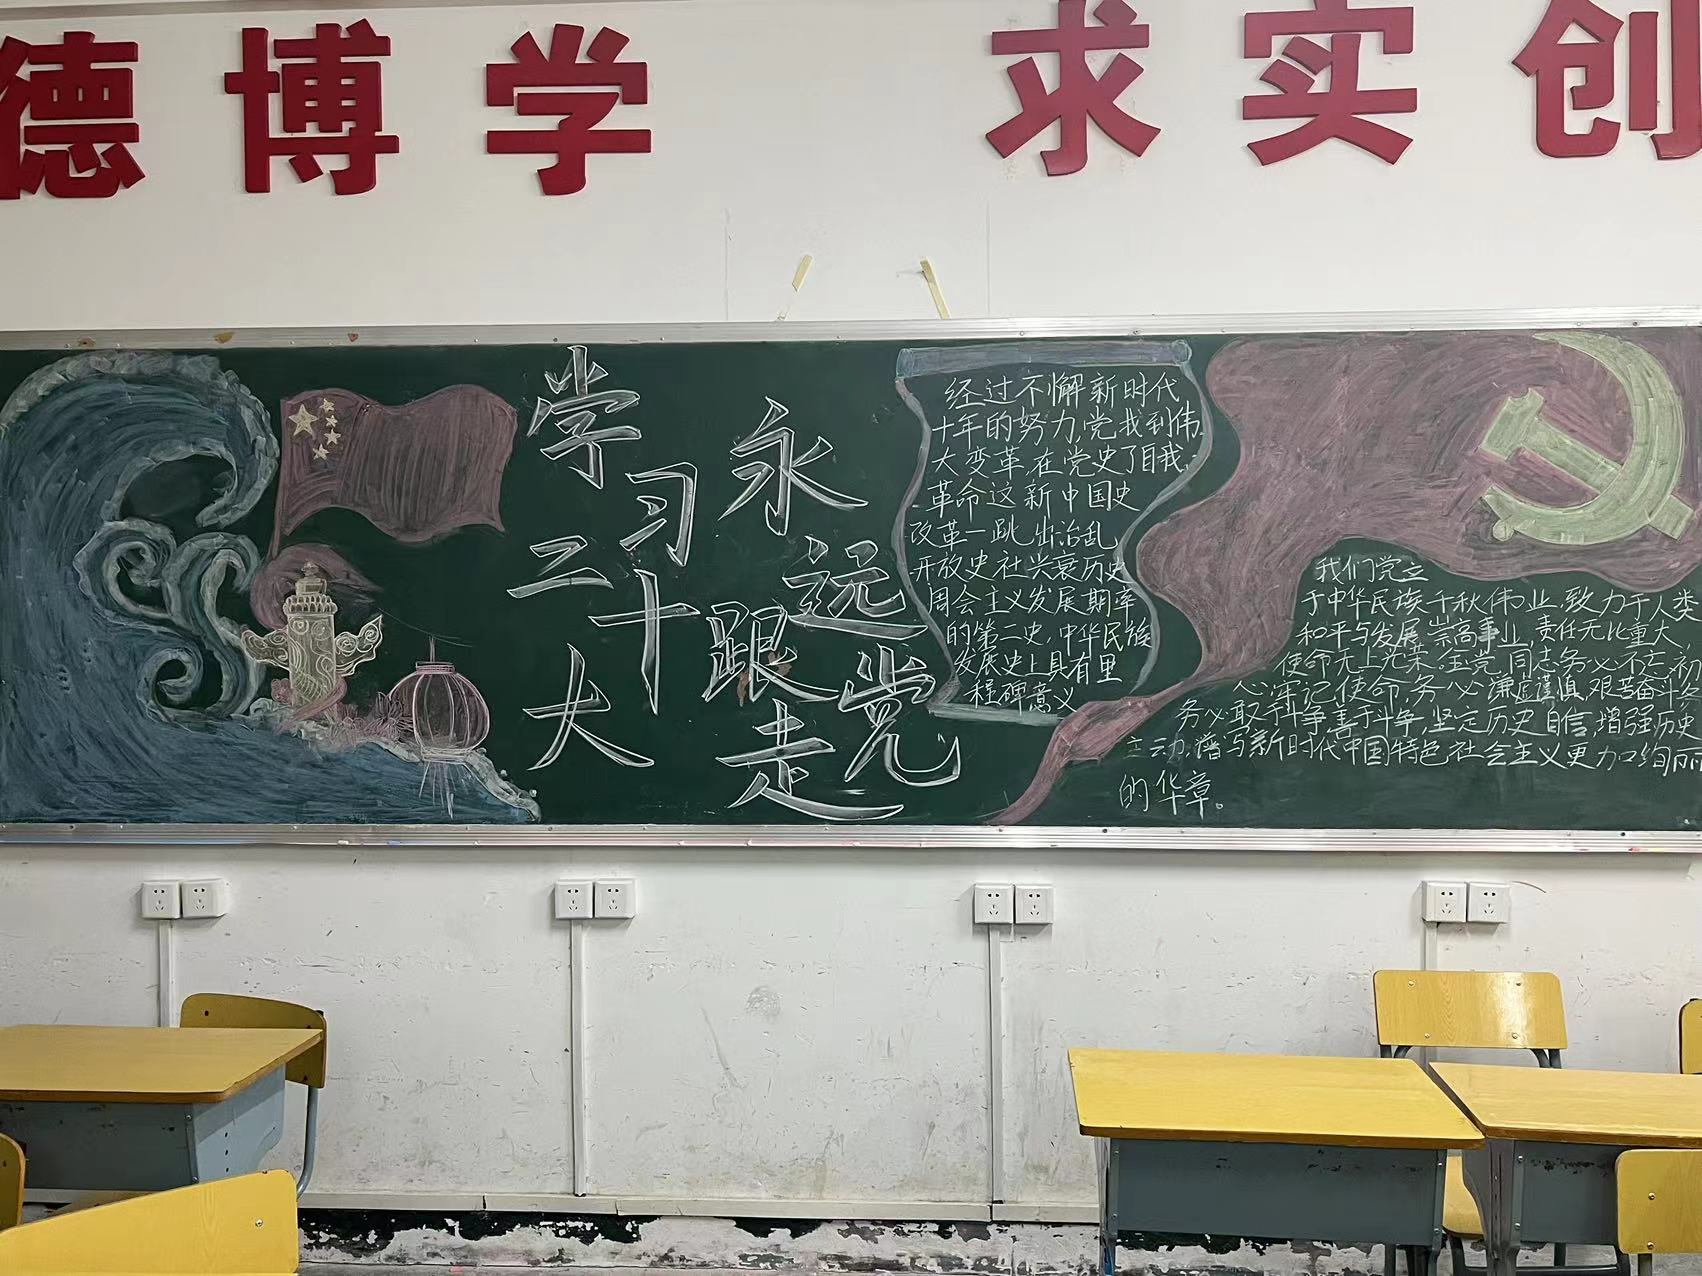 德博学 求实创
学习二十大
永远跟党走
经过不懈新时代
十年的努力,党我到伟
大变革,在党史了自我
革命这新中国史
改革一跳出治乱
开放史社兴衰历史
周会主义发展期率
的第二史,中华民族
发展史上具有里
程碑意义
我们党立
于中华民族千秋伟业,致力于人类
和平与发展崇高事业,责任无比重大,
使命无上光荣。全党同志务必不忘初
心牢记使命,务必谦虚谨慎艰苦奋斗,
务必敢于斗争善于斗争,坚定历史自信,增强历史
主动,谱写新时代中国特色社会主义更加绚丽
的华章。